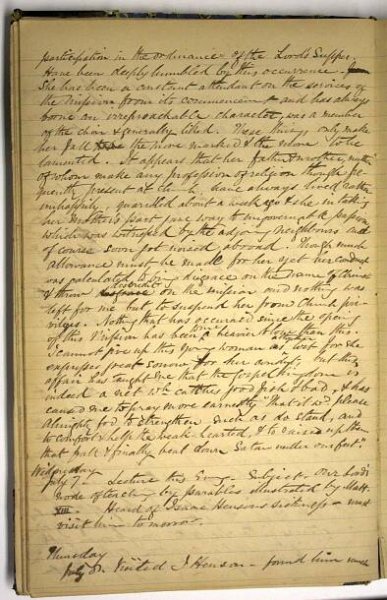 participation in the ordinance of the Lord's Supper.
Have been deeply humbled by this occurrence.
She has been a constant attendant on the services of
the Mission from its commencement and has always
borne an irreproachable character, was a member
of the choir & generally liked. These things only make
her fall the more marked & the more to be
lamented. It appears that her father & mother, neither
of whom make any profession of religion though fre
quently present at Ch--h, have always lived rather
unhappily, quarelled about a week ago & she in taking
her mother's part gave way to ungovernable passion
which was witnessed by the adjoing neighbours and
of course soon got noised abroad. Though much
allowance must be made for her yet her conduct
was calculated to bring disgrace on the name of Christ
& throw discredit on the mission and nothing was
left for me but to suspend her from Church pri-
vileges. Nothing that has occurred since the opening
of this Mission has been a heavier blow than this.
I cannot give up this young woman altogether as lost for she
expresses great sorrow for her conduct, but this
affair has taught me that the gospel kingdom is
indeed a net wh catches good fish & bad, & has
caused me to pray more earnestly "that it wd please
Almighty God to strengthen such as do stand, and
to comfort & help the weak-hearted, & to raise up them
that fall & finally beat down Satan under our feet."
Wednesday
July 7. Lecture this Eveg. Subject. Our Lord's
mode of teaching by parables illustrated by Matt.
XIII. Heard of Isaac Henson's sickness - must
visit him tomorrow.
Thursday
July 8. Visited I Henson - found him much